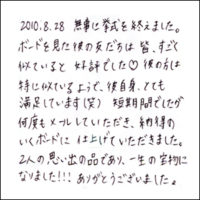 2010.8.28 無事に挙式を終えました。
ボードを見た彼の友だちは皆、すごく
似ていると好評でした♡ 彼の方は
特に似ているようで、彼自身、とても
満足しています(笑) 短期間でしたが
何度もメールしていただき、納得の
いくボードに仕上げていただきました。
2人の思い出の品であり、一生の宝物に
なりました!!! ありがとうございました。